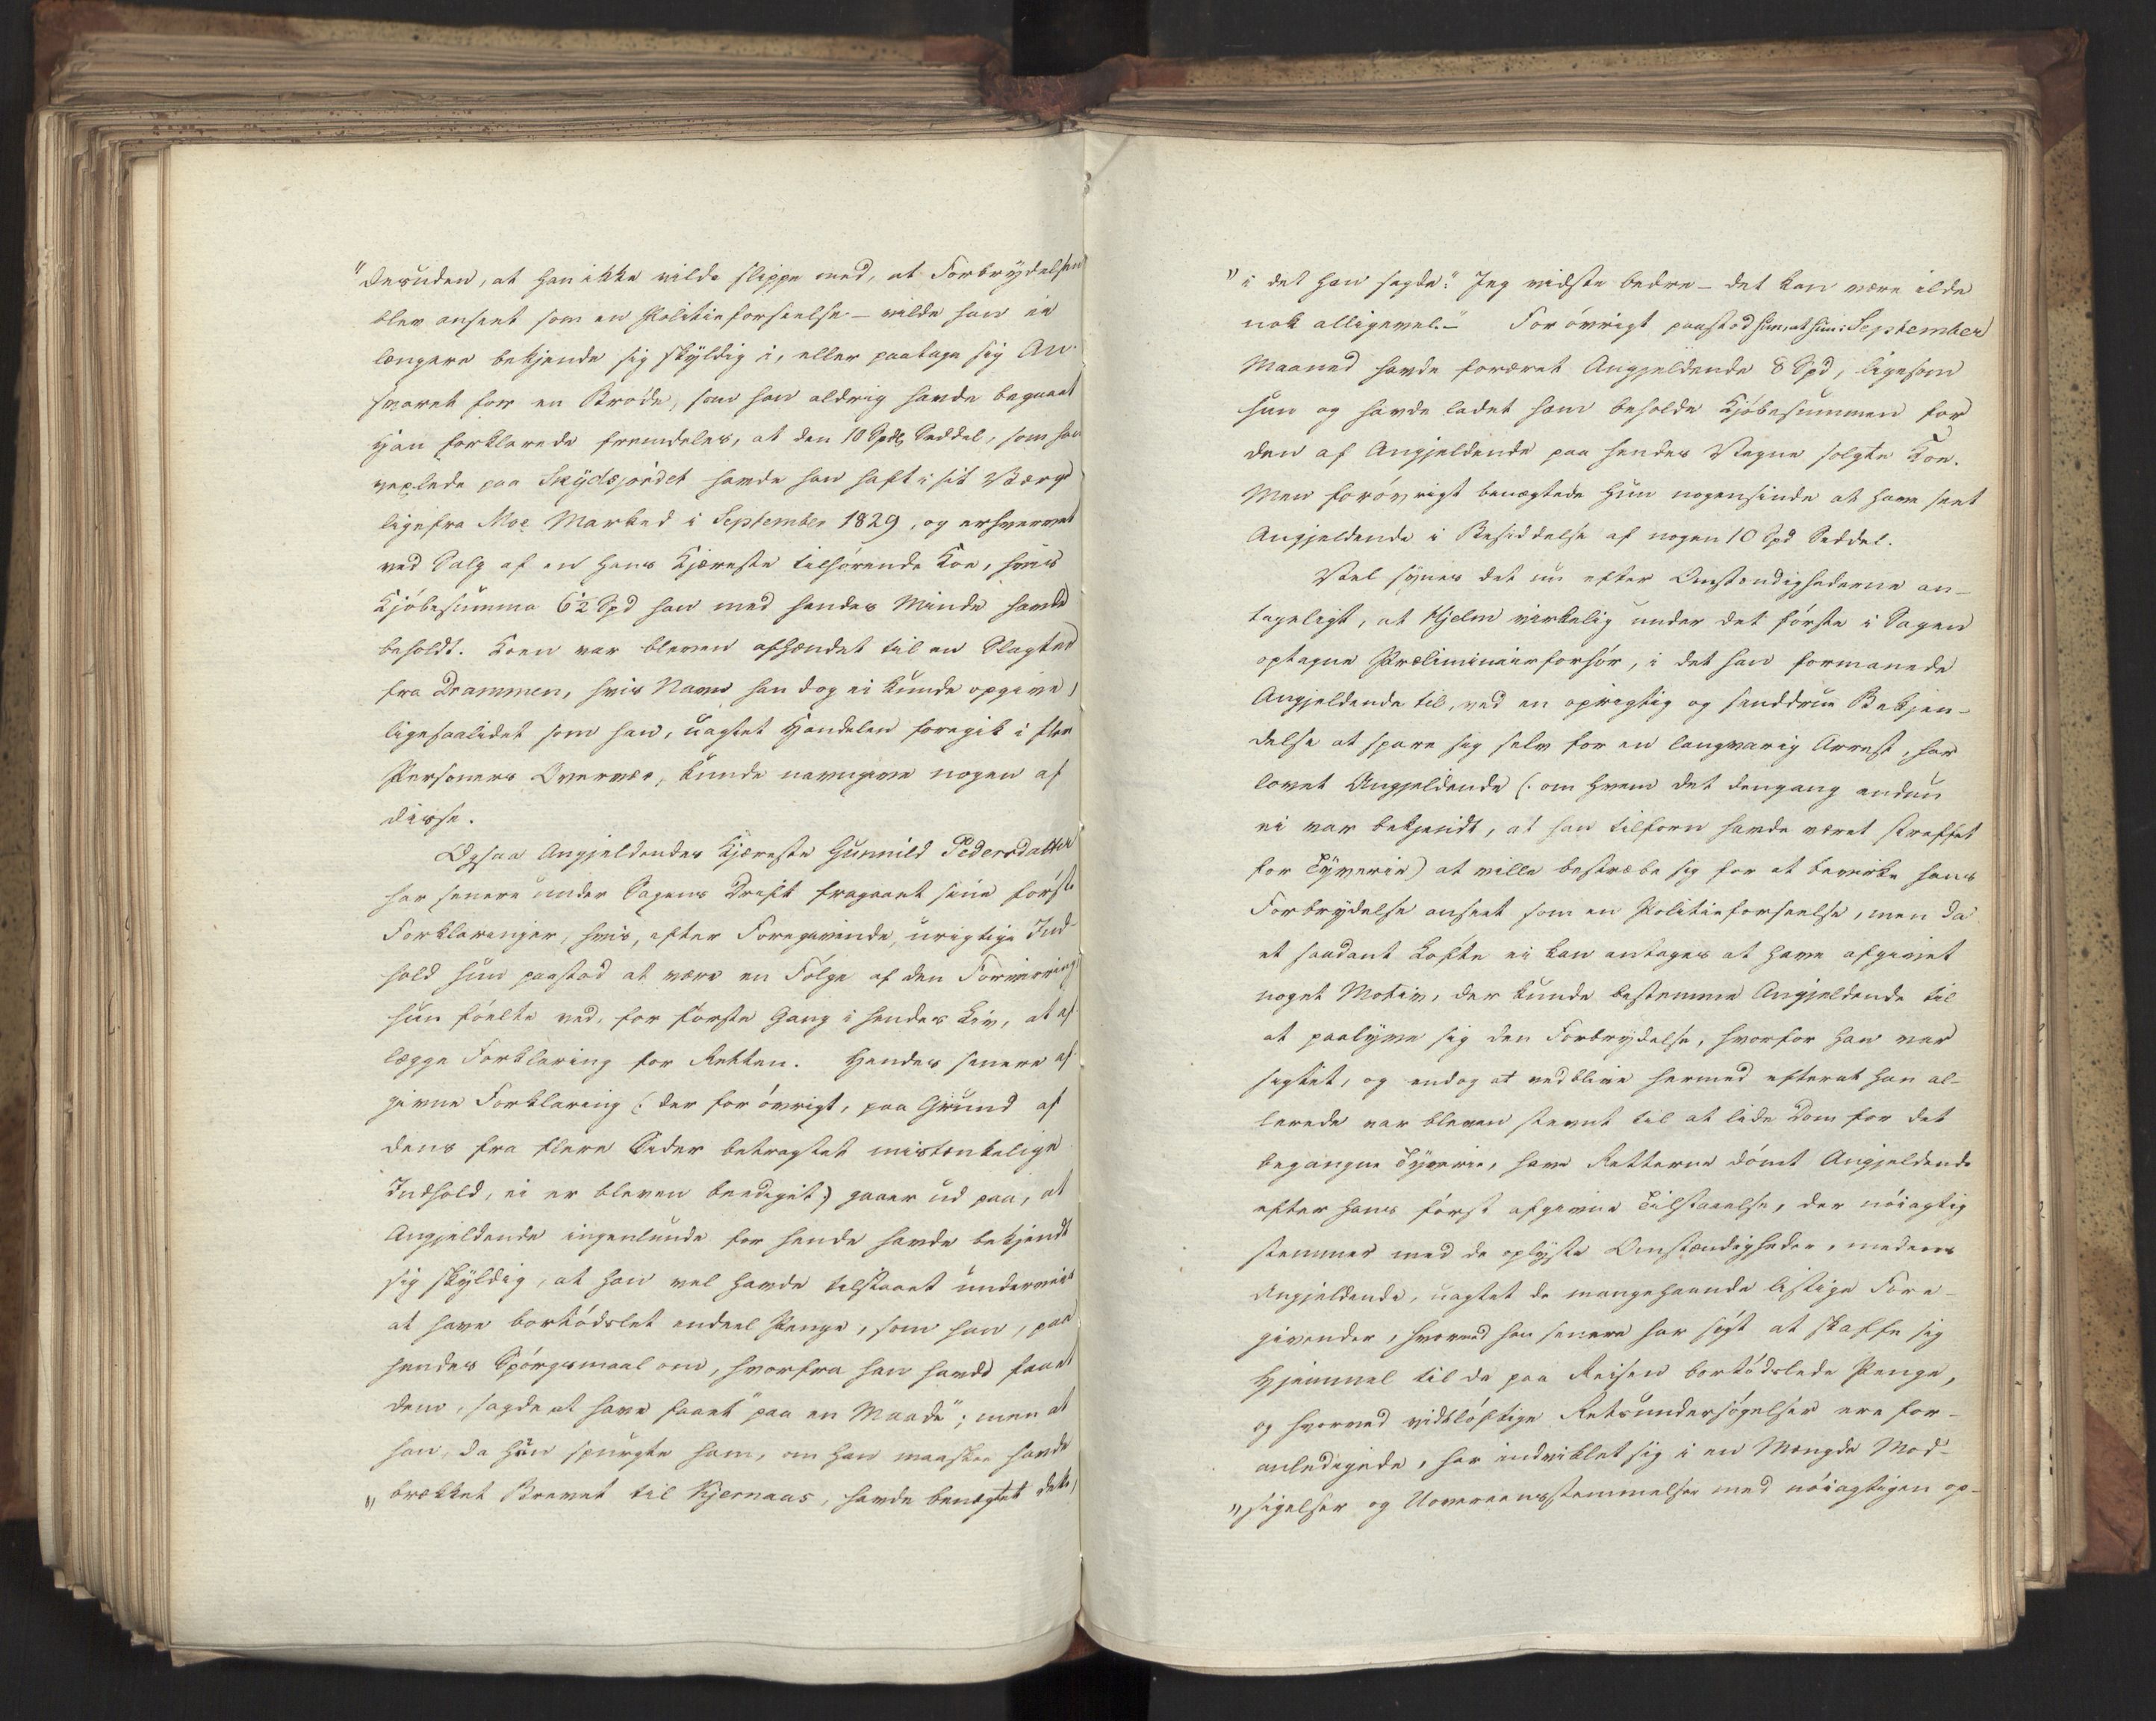 "Desuden, at han ikke vilde slippe med, at Forbrydelsen
blev anseet som en Politieforseelse – vilde han ei
længere bekjende sig skyldig i, eller paatage sig An-
svaret for en Brøde, som han aldrig havde begaaet
Han forklarede fremdeles, at den 10 Spdlr Seddel, som han
vexlede paa Skydsjordet havde han haft i sit Værge
lige fra Moe Marked i September 1829, og erhvervet
ved Salg af en hans Kjæreste tilhørende Koe, hvis
Kjøbesumma 6½ Spd han med hendes Minde havde
beholdt. Koen var bleven afhændet til en Slagter
fra Drammen, hvis Navn han dog ei kunde opgive,
ligesaalidet som han, uagtet Handelen foregik i flere
Personers Overvær, kunde navngive nogen af
disse.
Ogsaa Angjeldendes Kjæreste Gunnild Pedersdatter
har senere under Sagens Drift fragaaet sine første
Forklaringer, hvis, efter Foregivende, urigtige Ind-
hold hun paastod at være en Følge af den Forvirring
hun følte ved, for første Gang i hendes Liv, at af-
lægge Forklaring for Retten. Hendes senere af-
givne Forklaring (: der for øvrigt, paa Grund af
dens fra flere Sider betragtet mistænkelige
Indhold, ei er bleven beediget:) gaaer ud paa, at
Angjeldende ingenlunde for hende havde bekjendt
sig skyldig, at han vel havde tilstaaet underveis
at have bortødslet endeel Penge, som han, paa
hendes Spørgsmaal om, hvorfra han havde faaet
dem, sagde at have faaet "paa en Maade"; men at
han, da hun spurgte ham, om han maaskee havde
" brækket Brevet til Kjernaas, havde benægtet dette,
" i det han sagde: "Jeg vidste bedre – det kan være ilde
nok alligevel." – For øvrigt paastod hun, at hun i September
Maaned havde foræret Angjeldende 8 Spd, ligesom
hun og havde ladet ham beholde Kjøbesummen for
den af Angjeldende paa hendes Vegne solgte Koe.
Men forøvrigt benægtede hun nogensinde at have seet
Angjeldende i Besiddelse af nogen 10 Spd Seddel.
Vel synes det nu efter Omstændighederne an-
tageligt, at Hjelm virkelig under det første i Sagen
optagne Præliminairforhør, i det han formanede
Angjeldende til, ved en oprigtig og sanddrue Bekjen-
delse at spare sig selv for en langvarig Arrest, har
lovet Angjeldende (: om hvem det dengang endnu
ei var bekjendt, at han tilforn havde været straffet
for Tyverie) at ville bestræbe sig for at bevirke hans
Forbrydelse anseet som en Politieforseelse, men da
et saadant Løfte ei kan antages at have afgivet
noget Motiv, der kunde bestemme Angjeldende til
at paalyve sig den Forbrydelse, hvorfor han var
sigtet, og endog at vedblive hermed efterat han al-
lerede var bleven stevnt til at lide Dom for det
begangne Tyverie, have Retterne dømt Angjeldende
efter hans først afgivne Tilstaaelse, der nøiagtig
stemmer med de oplyste Omstændigheder, medens
Angjeldende, uagtet de mangehaande listige Fore-
givender, hvorved han senere har søgt at skaffe sig
Hjemmel til de paa Reisen bortødslede Penge,
og hvorved vidtløftige Retsundersøgelser ere for-
anledigede, har indviklet sig i en Mængde Mod-
" sigelser og Uovereensstemmelser med nøiagtigen op-